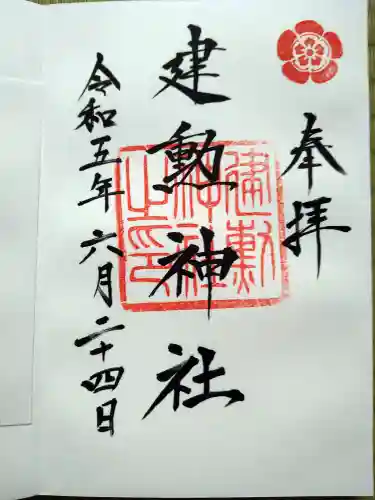 奉拝
建勲神社
建勲神社之印
令和五年六月二十四日